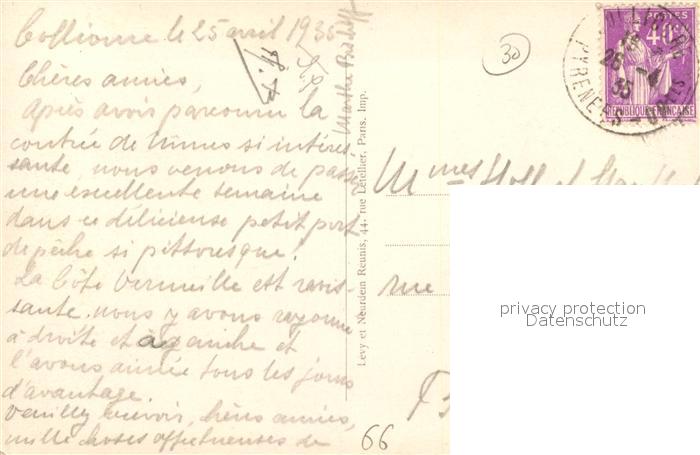 Collioure le 25 avril 1935
Chères amies,
Après avoir parcouru la
contrée de Nîmes si intéres-
sante, nous venons de passé
une excellente semaine
dans ce délicieuse petit port
de pêche si pittoresque!
La Côte Vermeille est ravis-
sante. nous y avons rayonné
à droite et à gauche et
l'avons aimée tous les jours
d'avantage.
Veuillez recevoir, chères amies,
mille choses affectueuses de
Marthe
Levy et Neurdein Réunis, 44, rue Letellier, Paris. Imp.
30
POSTES
40c
REPUBLIQUE FRANÇAISE
26 -4
35
PYRENEES-
Mmes
rue
66
privacy protection
Datenschutz